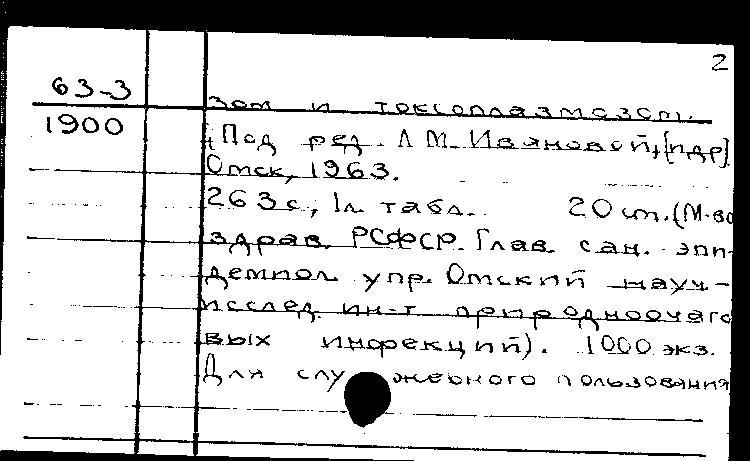 2
63-3
1900
зом и токсоплазмозом.
[Под ред. Л.М. Ивановой, [и др]
Омск, 1963.
263 с., 1 л. табл. 20 см. (М-во
здрав. РСФСР. Глав. сан. эпи-
демиол упр. Омский науч-
исслед. ин-т природноочаго
вых инфекций). 1000 экз.
Для служебного пользования